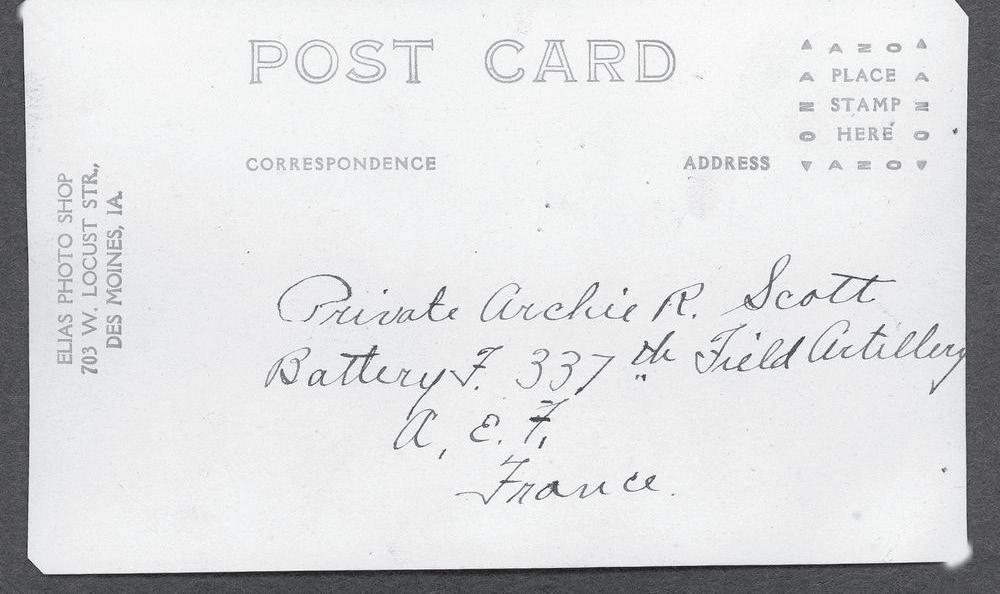 POST CARD
▲ AZO ▲
A PLACE A
Z STAMP Z
O HERE O
▼ AZO ▼
CORRESPONDENCE
ADDRESS
ELIAS PHOTO SHOP
703 W. LOCUST STR.,
DES MOINES, IA.
Private Archie R. Scott
Battery F. 337th Field Artillery
A. E. F.
France.